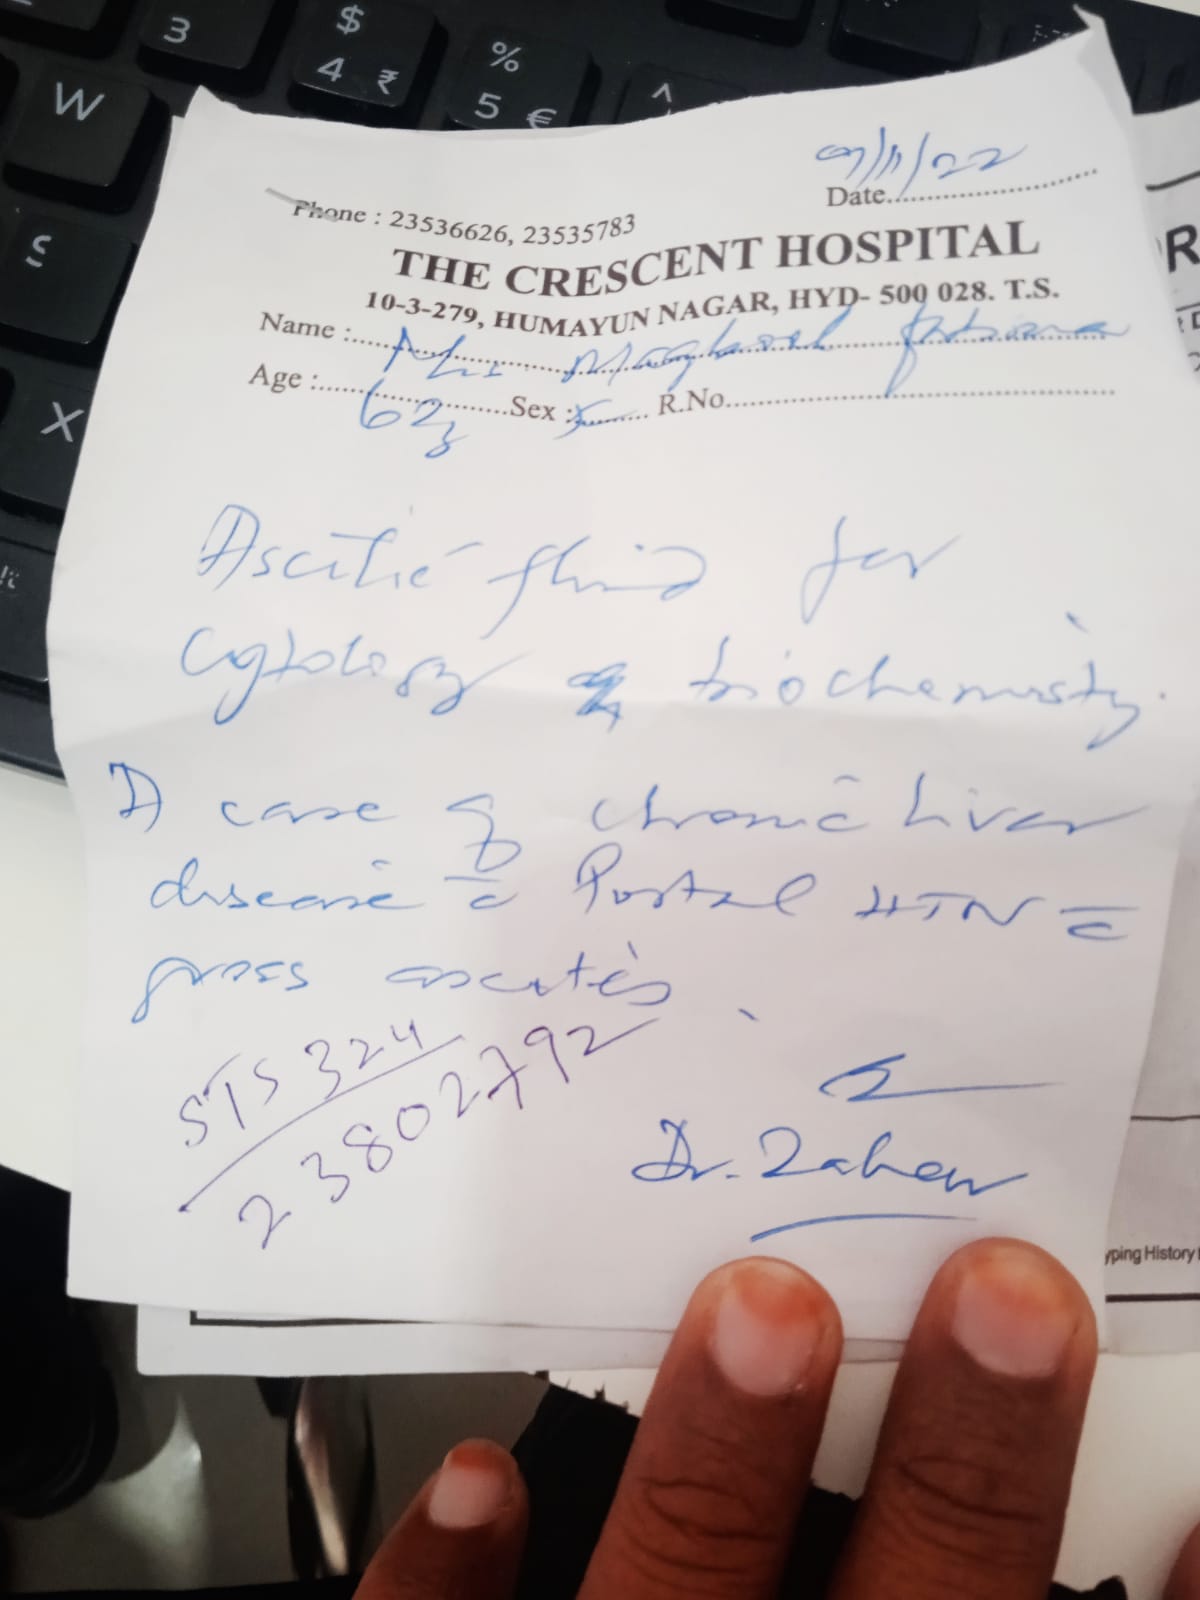 3
$
4 ₹
%
5 €
^
W
S
X
/11/22
Date
Phone : 23536626, 23535783
THE CRESCENT HOSPITAL
10-3-279, HUMAYUN NAGAR, HYD- 500 028. T.S.
Name : Fatima
Age : 62y Sex : R.No.
Ascitic fluid for
Cytology & biochemistry.
A case of chronic Liver
disease c̄ Portal HTN c̄
gross ascites.
STS 324
23802792
Dr. Zaheer
R
yping History